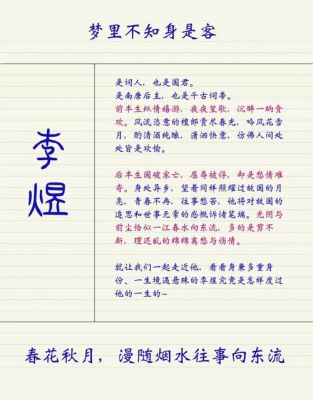 梦里不知身是客
李煜
是词人，也是国君。
是南唐后主，也是千古词帝。
前半生纵情嬉游，夜夜笙歌，沉醉一晌贪
欢。风流恣意的檀郎赏尽春光，吟风花雪
月，酌清酒纯酿，潇洒快意，仿佛人间处
处皆是欢愉。
后半生国破家亡，屈辱被俘，却是愁情难
寄。身处异乡，望着同样照耀过故国的月
亮，青春不再，往事愁苦，他将对故国的
追思和世事无常的感慨诉诸笔端。光阴与
前尘恰似一江春水向东流，多的是剪不
断，理还乱的绵绵离愁与伤情。
就让我们一起走近他，看看身兼多重身
份、一生境遇悬殊的李煜究竟是怎样度过
他的一生的~
春花秋月，漫随烟水往事向东流